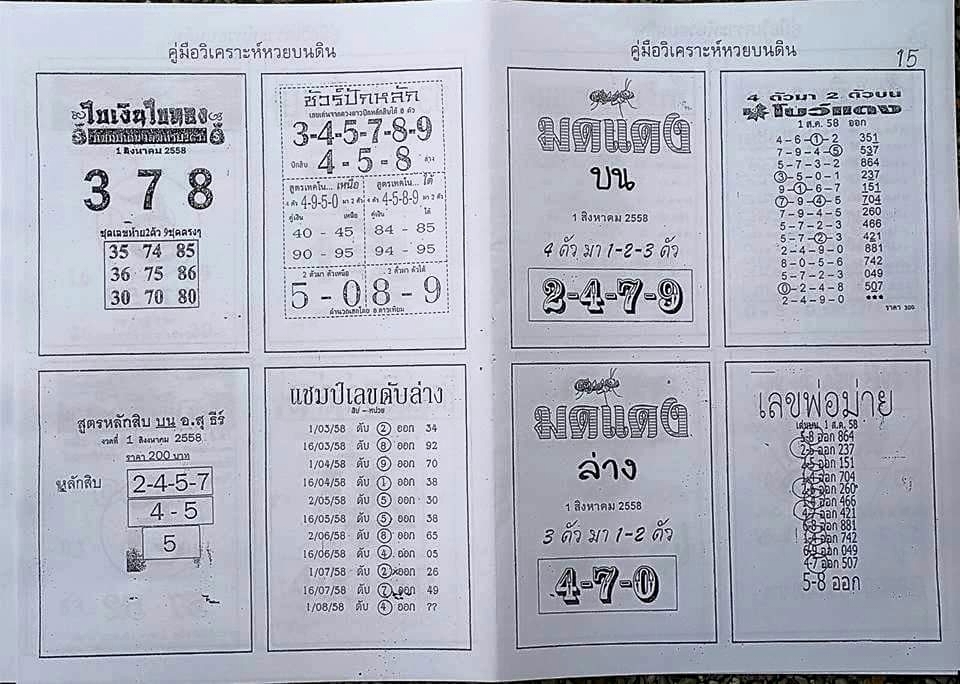 คู่มือวิเคราะห์หวยบนดิน
ใบเงินใบทอง
1 สิงหาคม 2558
3 7 8
ชุดเลขท้าย2ตัว 9ชุดตรงๆ
35 74 85
36 75 86
30 70 80
ชัวร์ปักหลัก
3-4-5-7-8-9
ปักสิบ 4-5-8 ล่าง
สูตรเทคโน... เหนือ
4 ตัว 4-9-5-0 มา 2 ตัว
คู่เงิน เหนือ
40 - 45
90 - 95
สูตรเทคโน... ใต้
4 ตัว 4-5-8-9 มา 2 ตัว
คู่เงิน ใต้
84 - 85
94 - 95
2 ตัวมา ตัวเหนือ
5 - 0
2 ตัวมา ตัวใต้
8 - 9
คำนวณเลขโดย อ.ดาวเทียม
สูตรหลักสิบ บน อ.สุ ธีร์
งวดที่ 1 สิงหาคม 2558
ราคา 200 บาท
หลักสิบ 2-4-5-7
4 - 5
5
แชมป์เลขดับล่าง
สิบ - หน่วย
1/03/58 ดับ 2 ออก 34
16/03/58 ดับ 8 ออก 92
1/04/58 ดับ 9 ออก 70
16/04/58 ดับ 1 ออก 38
2/05/58 ดับ 5 ออก 30
16/05/58 ดับ 5 ออก 38
2/06/58 ดับ 8 ออก 65
16/06/58 ดับ 4 ออก 05
1/07/58 ดับ 2 ออก 26
16/07/58 ดับ 7 ออก 49
1/08/58 ดับ 4 ออก ??
คู่มือวิเคราะห์หวยบนดิน
15
มดแดง
บน
1 สิงหาคม 2558
4 ตัว มา 1-2-3 ตัว
2-4-7-9
4 ตัวมา 2 ตัวบน
ใบวัแดง
1 ส.ค. 58 ออก
4-6-1-2 351
7-9-4-5 537
5-7-3-2 864
3-5-0-1 237
9-1-6-7 151
7-9-4-5 704
7-9-4-5 260
5-7-2-3 466
5-7-2-3 421
2-4-9-0 881
8-0-5-6 742
5-7-2-3 049
0-2-4-8 507
2-4-9-0 ***
ราคา 300
มดแดง
ล่าง
1 สิงหาคม 2558
3 ตัว มา 1-2 ตัว
4-7-0
เลขพ่อม่าย
เด่นบน 1 ส.ค. 58
5-8 ออก 864
2-5 ออก 237
4-5 ออก 151
1-4 ออก 704
2-5 ออก 260
3-4 ออก 466
4-7 ออก 421
6-8 ออก 881
1-4 ออก 742
6-9 ออก 049
4-7 ออก 507
5-8 ออก